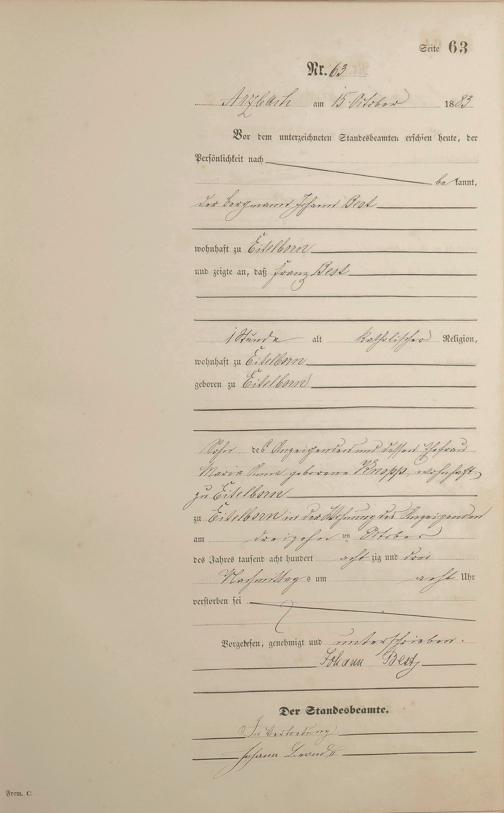 Seite 63
Nr. 63
Arzbach am 15 October 1883
Vor dem unterzeichneten Standesbeamten erschien heute, der
Persönlichkeit nach
bekannt,
der Bergmann Johann Best
wohnhaft zu Eitelborn
und zeigte an, daß Franz Best
1 Stunde alt katholischer Religion,
wohnhaft zu Eitelborn
geboren zu Eitelborn
Sohn des Anzeigenden und dessen Ehefrau
Maria Anna geborene Knopp, wohnhaft
zu Eitelborn
zu Eitelborn in der Wohnung des Anzeigenden
am dreizehn ten October
des Jahres tausend acht hundert achtzig und drei
Nachmittags um acht Uhr
verstorben sei
Vorgelesen, genehmigt und unterschrieben.
Johann Best
Der Standesbeamte.
In Vertretung
Johann
Form. C.